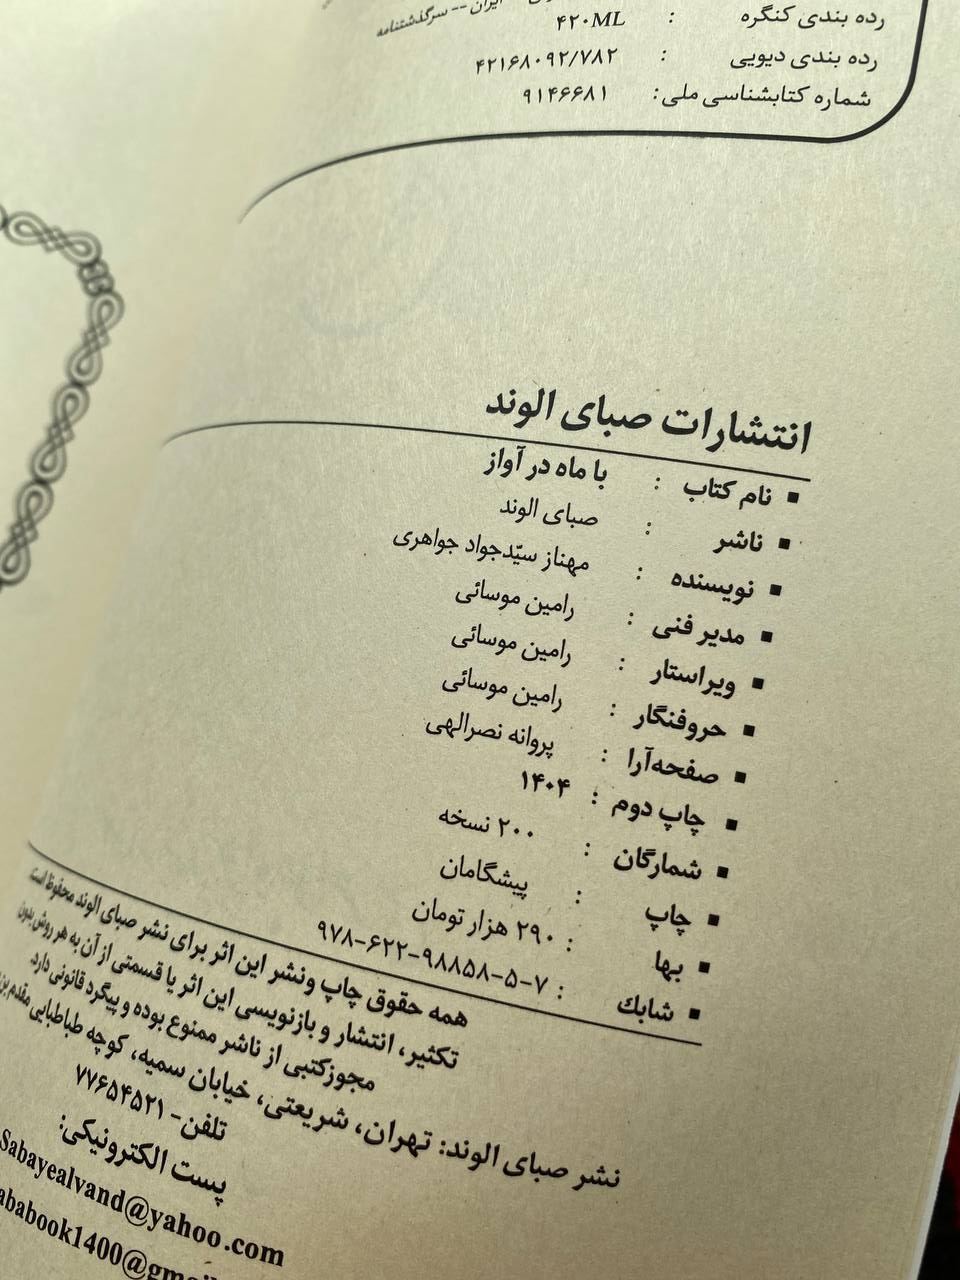 ایران -- سرگذشتنامه
رده بندی کنگره : ۴۲۰ML
رده بندی دیویی : ۴۲۱۶۸۰۹۲/۷۸۲
شماره کتابشناسی ملی: ۹۱۴۶۶۸۱
انتشارات صبای الوند
■ نام کتاب : با ماه در آواز
■ ناشر : صبای الوند
■ نویسنده : مهناز سیّدجواد جواهری
■ مدیر فنی : رامین موسائی
■ ویراستار : رامین موسائی
■ حروفنگار : رامین موسائی
■ صفحه‌آرا : پروانه نصرالهی
■ چاپ دوم : ۱۴۰۴
■ شمارگان : ۲۰۰ نسخه
■ چاپ : پیشگامان
■ بها : ۲۹۰ هزار تومان
■ شابك : ۹۷۸-۶۲۲-۹۸۸۵۸-۵-۷
همه حقوق چاپ ونشر این اثر برای نشر صبای الوند محفوظ است.
تکثیر، انتشار و بازنویسی این اثر یا قسمتی از آن به هر روش بدون
مجوزکتبی از ناشر ممنوع بوده و پیگرد قانونی دارد.
نشر صبای الوند: تهران، شریعتی، خیابان سمیه، کوچه طباطبایی مقدم
تلفن- ۷۷۶۵۴۵۲۱
پست الکترونیکی:
Sabayealvand@yahoo.com
ababook1400@gmai